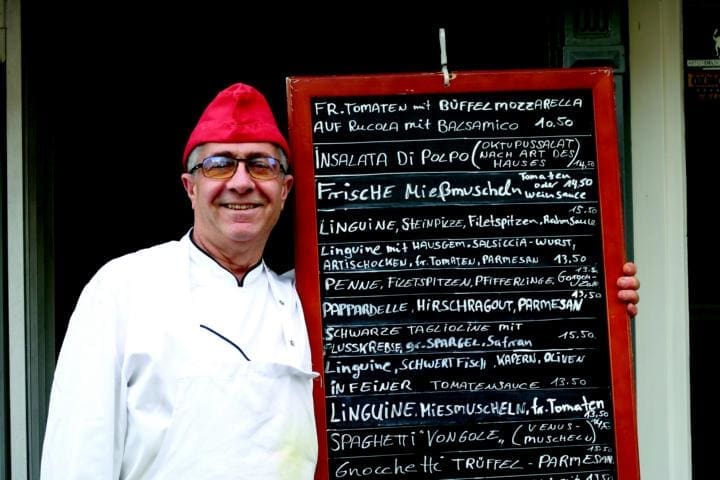 FR. TOMATEN mit BÜFFELMOZZARELLA
AUF RUCOLA mit BALSAMICO 10.50
INSALATA Di POLPO (OKTUPUSSALAT
NACH ART DES
HAUSES) 14,50
FRISCHE Mießmuscheln Tomaten
oder 14,50
weinsauce
15.50
LINGUINE, STEINPILZE, Filetspitzen, RahmSauce
Linguine mit HAUSGEM. SALSICCIA-WURST,
ARTISCHOCKEN, fr. TOMATEN, PARMESAN 13.50
PENNE, FILETSPITZEN, PFIFFERLINGE, Gorgon-
zola
PAPPARDELLE, HIRSCHRAGOUT, PARMESAN
13,50
SCHWARZE TAGLIOLINE MIT
FLUSSKREBSE, gr. SPARGEL, Safran 15.50
Linguine, SCHWERTFISCH, KAPERN, OLIVEN
IN FEINER TOMATENSAUCE 13.50
LINGUINE, MIESMUSCHELN, fr. Tomaten
13,50
SPAGHETTI "VONGOLE" (VENUS-
MUSCHELN)
GNOCCHETTI TRÜFFEL-PARMESAN